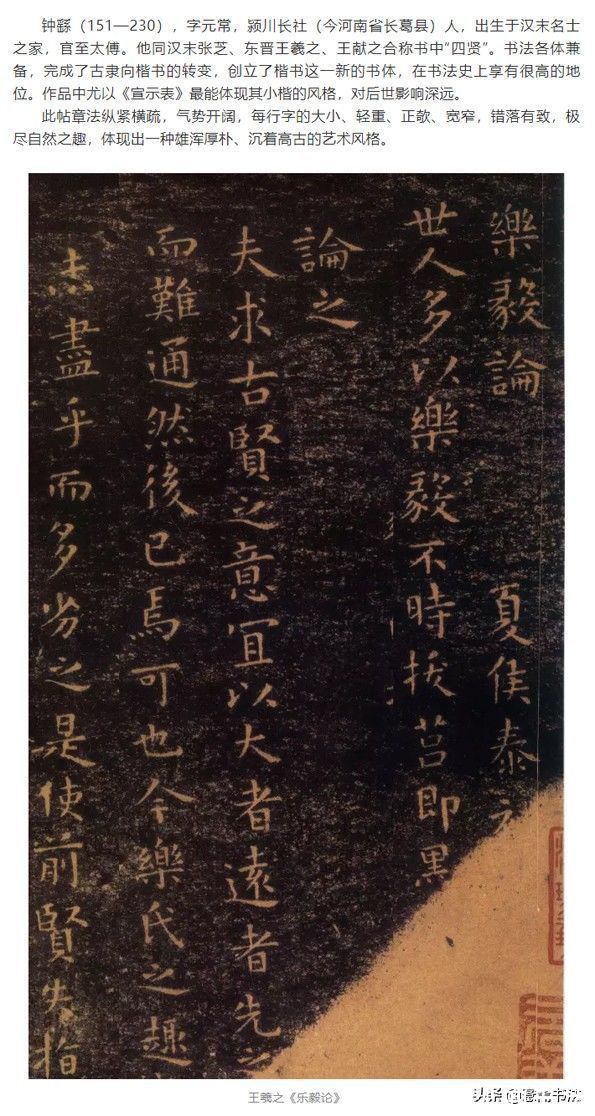 钟繇（151—230），字元常，颍川长社（今河南省长葛县）人，出生于汉末名士
之家，官至太傅。他同汉末张芝、东晋王羲之、王献之合称书中“四贤”。书法各体兼
备，完成了古隶向楷书的转变，创立了楷书这一新的书体，在书法史上享有很高的地
位。作品中尤以《宣示表》最能体现其小楷的风格，对后世影响深远。
此帖章法纵紧横疏，气势开阔，每行字的大小、轻重、正欹、宽窄，错落有致，极
尽自然之趣，体现出一种雄浑厚朴、沉着高古的艺术风格。
樂毅論 夏侯泰
世人多以樂毅不時拔莒即墨
論之
夫求古賢之意宜以大者遠者先之
而難通然後已焉可也今樂氏之趣
未盡乎而多劣之是使前賢失指
王羲之《乐毅论》
头条
书法